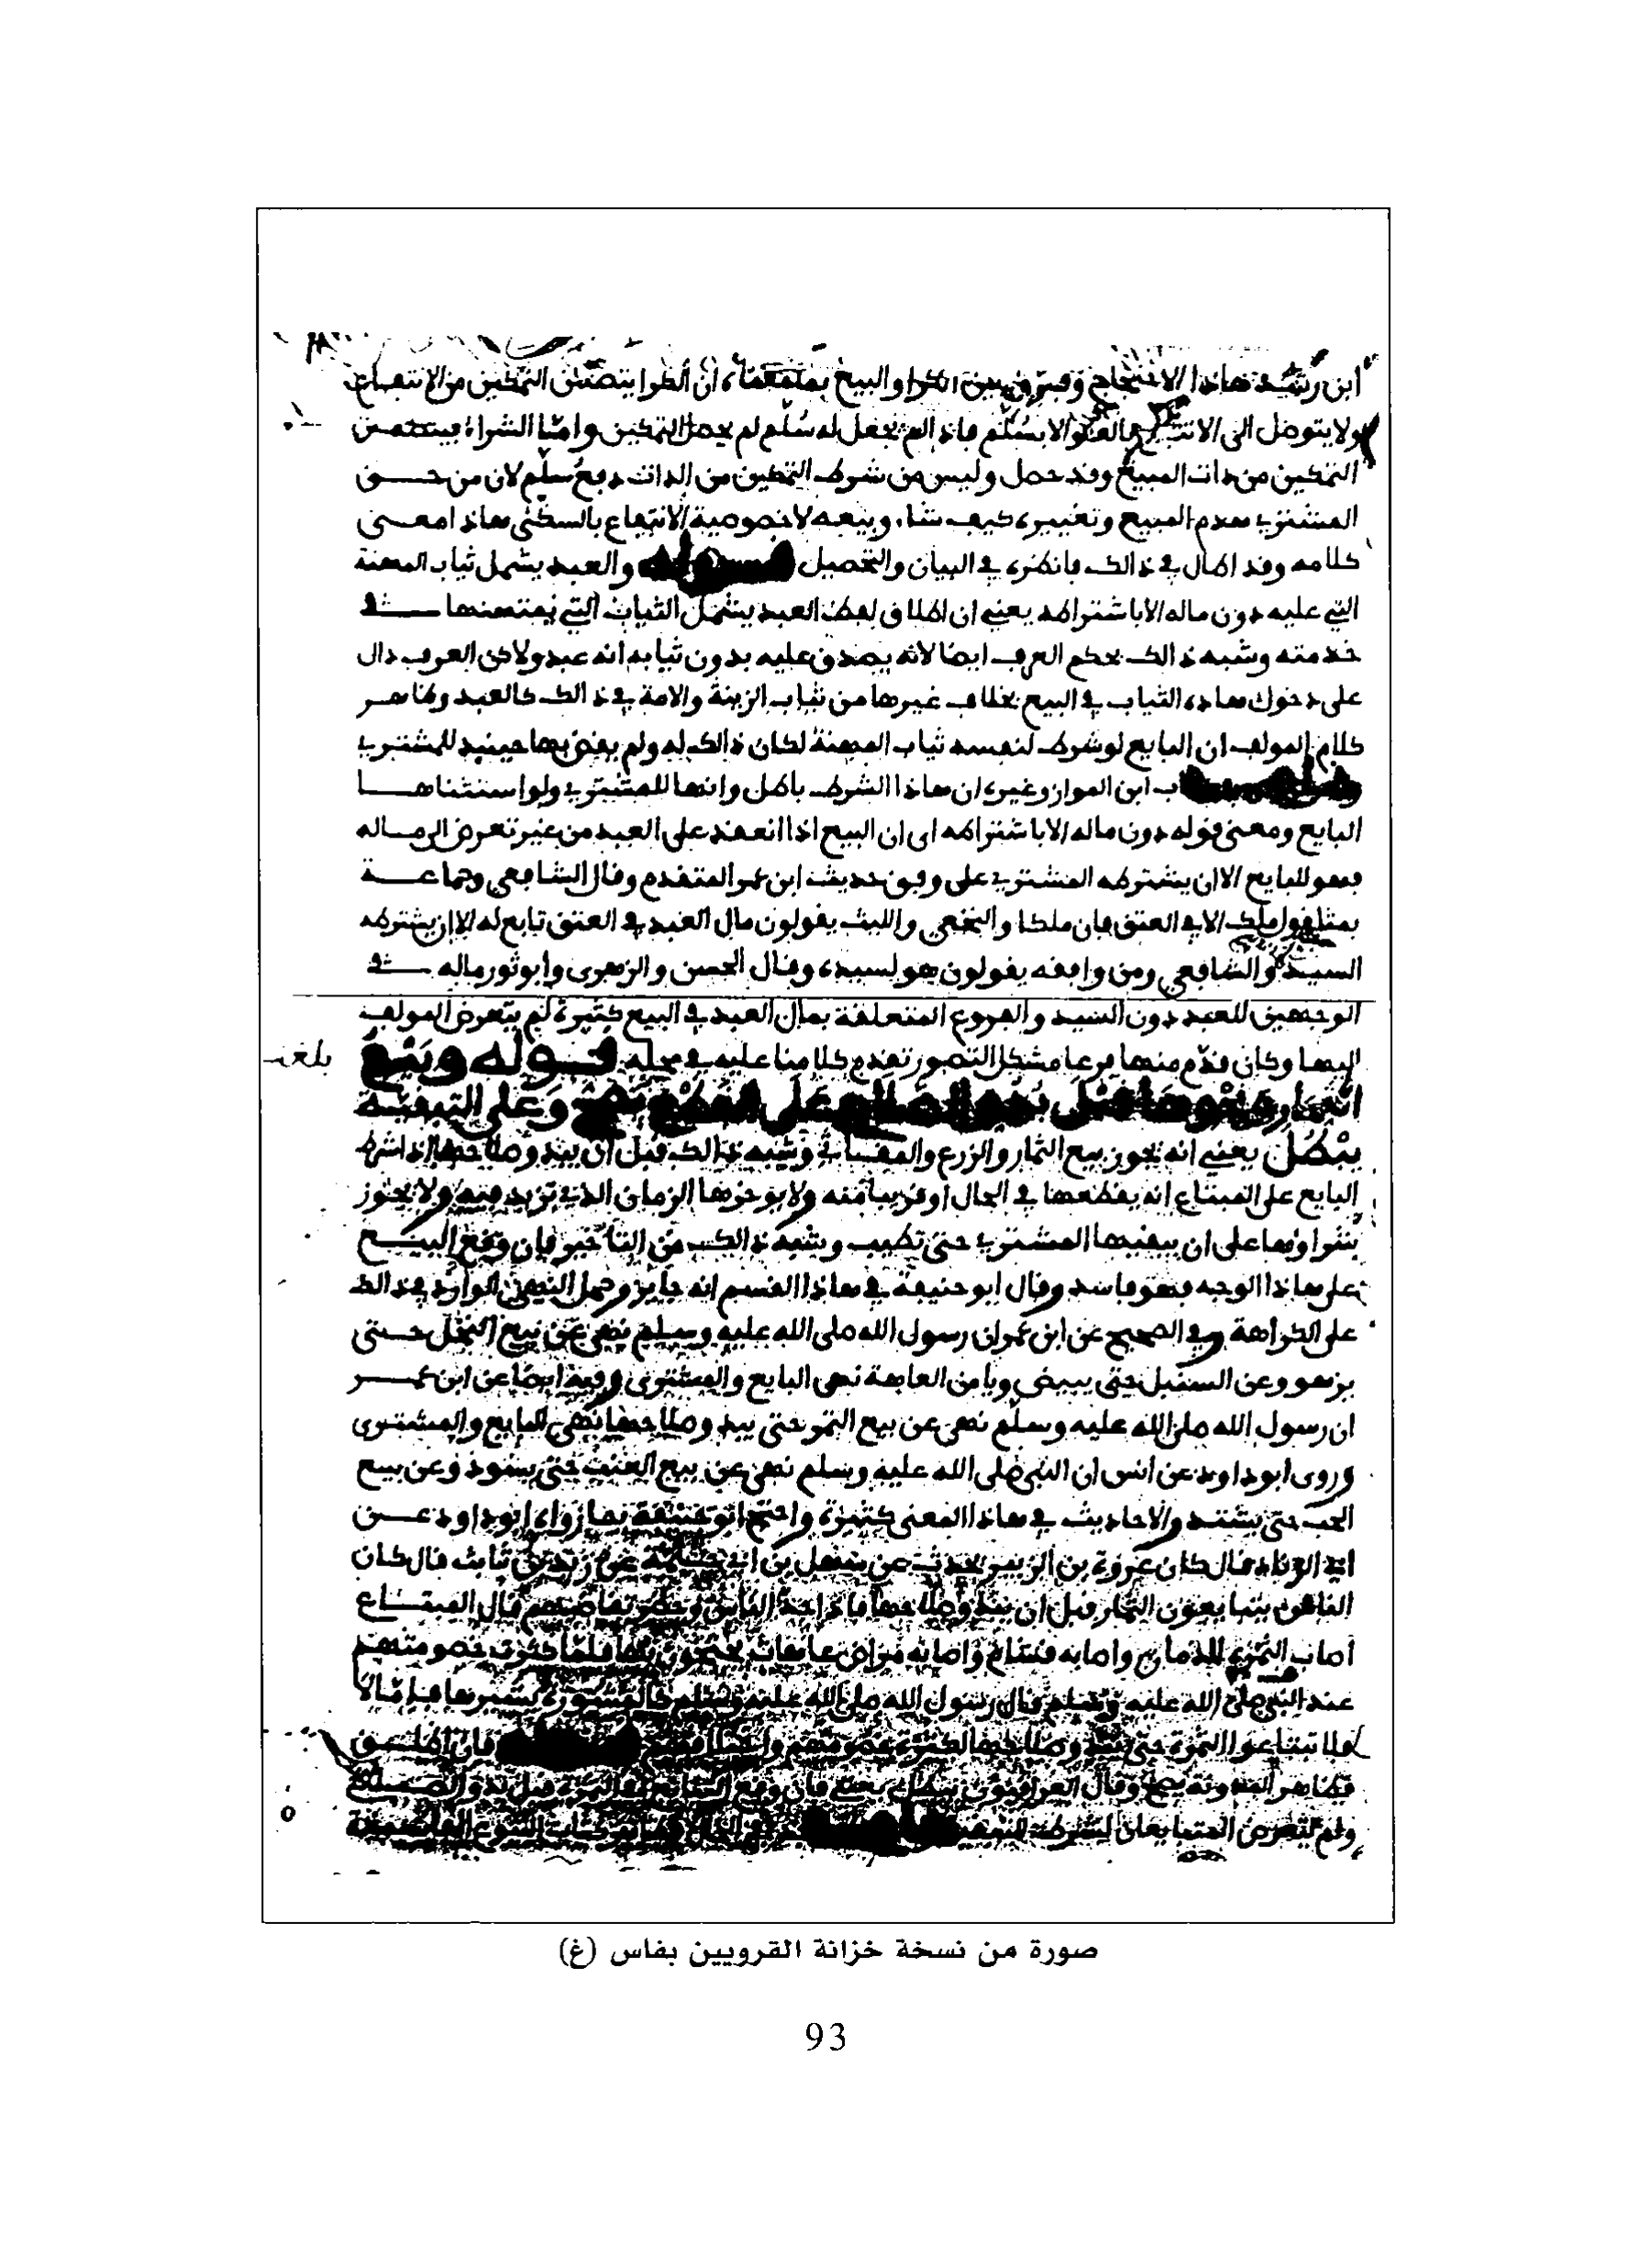 ابن رشد هاذا الاحتجاج وفرق بين الكرا والبيع بما معناه ان الكرا يتضمن التمكين من الانتفاع
ولا يتوصل الى الانتفاع بالعلو الا بسلم فاذا لم يجعل له سلم لم يحصل التمكين واما الشراء فيتضمن
التمكين من ذات المبيع وقد حصل وليس من شرط التمكين من الذات دفع سلم لان من حق
المشتري هدم المبيع وتغييره كيف شاء وبيعه لا خصوصية الانتفاع بالسكنى هاذا معنى
كلامه وقد اطال في ذالك فانظره في البيان والتحصيل قوله والعبد يشمل ثياب المهنة
التي عليه دون ماله الا باشتراطه يعني ان اطلاق لفظ العبد يشمل الثياب التي يمتهنها في
خدمته وشبه ذالك بحكم العرف ايضا لانه يصدق عليه بدون ثيابه انه عبد ولاكن العرف دال
على دخول هاذه الثياب في البيع بخلاف غيرها من ثياب الزينة والامة في ذالك كالعبد وظاهر
كلام المولف ان البايع لو شرط لنفسه ثياب المهنة لكان ذالك له ولم يقض بها حينيذ للمشتري
ابن المواز وغيره ان هاذا الشرط باطل وانها للمشتري ولو استثناها
البايع ومعنى قوله دون ماله الا باشتراطه اي ان البيع اذا انعقد على العبد من غير تعرض الى ماله
فهو للبايع الا ان يشترطه المشتري على وفق حديث ابن عمر المتقدم وقال الشافعي وجماعة
بمثل قول ملك الا في العتق فان ملكا والنخعي والليث يقولون مال العبد في العتق تابع له الا ان يشترطه
السيد والشافعي ومن وافقه يقولون هو لسيده وقال الحسن والزهري وابو ثور ماله في
الوجهين للعبد دون السيد والفروع المتعلقة بمال العبد في البيع كثيرة لم يتعرض المولف
اليها وكان قدم منها فرعا مشكل التصور تقدم كلامنا عليه في محله قوله وبيع
بلغت
الثمار ونحوها قبل بدو الصلاح على القطع يصح وعلى التبقية
يبطل يعني انه يجوز بيع الثمار والزرع والمقاثي وشبه ذالك قبل ان يبدو صلاحها اذا شرط
البايع على المبتاع انه يقطعها في الحال او قريبا منه ولا يوخرها الزمان الذي تزيد فيه ولا يجوز
شراوها على ان يبقيها المشتري حتى تطيب وشبه ذالك من التاخير فان وقع البيع
على هاذا الوجه فهو فاسد وقال ابو حنيفة في هاذا القسم انه جايز وحمل النهي الوارد في ذالك
على الكراهة وفي الصحيح عن ابن عمر ان رسول الله صلى الله عليه وسلم نهى عن بيع النخل حتى
يزهو وعن السنبل حتى يبيض ويامن العاهة نهى البايع والمشتري وفيه ايضا عن ابن عمر
ان رسول الله صلى الله عليه وسلم نهى عن بيع الثمر حتى يبدو صلاحها نهى البايع والمشتري
وروى ابو داود عن انس ان النبي صلى الله عليه وسلم نهى عن بيع العنب حتى يسود وعن بيع
الحب حتى يشتد والاحاديث في هاذا المعنى كثيرة واحتج ابو حنيفة بما رواه ابو داود عن
ابي الزناد قال كان عروة بن الزبير يحدث عن سهل بن ابي حثمة عن زيد بن ثابت قال كان
الناس يتبايعون الثمار قبل ان يبدو صلاحها فاذا جد الناس وحضر تقاضيهم قال المبتاع
اصاب الثمر الدمان واصابه قشام واصابه مراض عاهات يحتجون بها فلما كثرت خصومتهم
عند النبي صلى الله عليه وسلم قال رسول الله صلى الله عليه وسلم كالمشورة يشير بها فاما لا
فلا تبتاعوا الثمرة حتى يبدو صلاحها لكثرة خصومتهم واختلافهم فان اطلق
فظاهر المدونة يصح وقال العراقيون يبطل يعني فان وقع
ولم يتعرض المتبايعان لشرط
صورة من نسخة خزانة القرويين بفاس (غ)
93